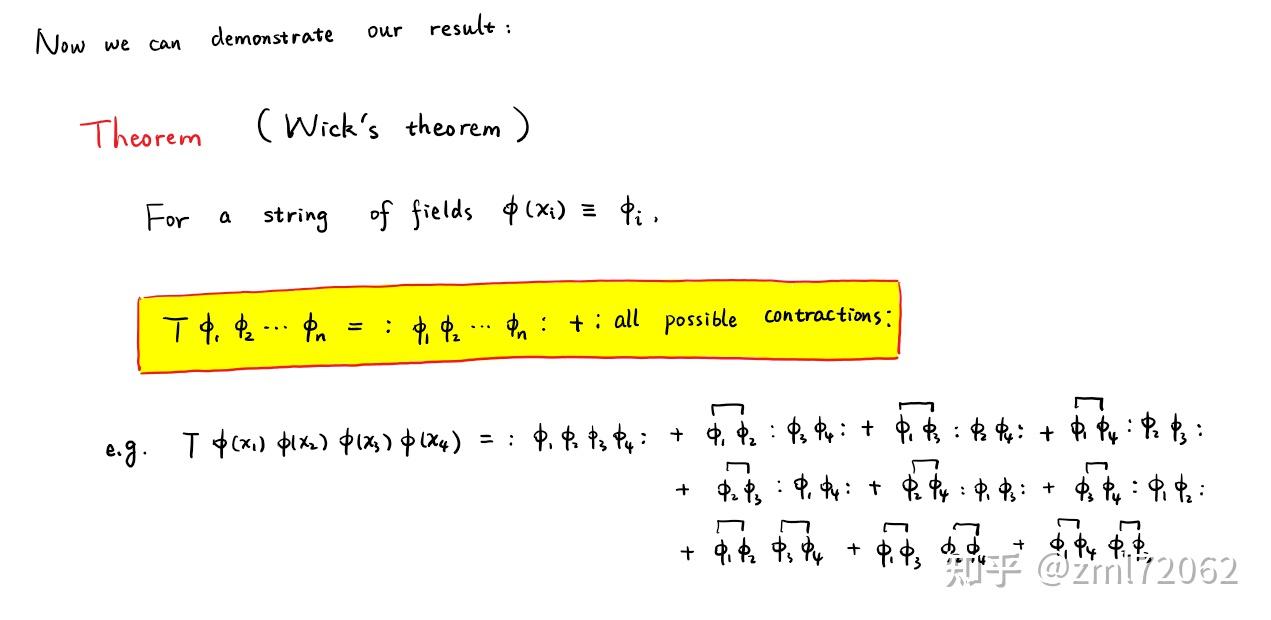 Now we can demonstrate our result:
Theorem (Wick's theorem)
For a string of fields ϕ(xᵢ) ≡ ϕᵢ,
T ϕ₁ ϕ₂ ⋯ ϕₙ = : ϕ₁ ϕ₂ ⋯ ϕₙ : + : all possible contractions:
e.g. T ϕ(x₁) ϕ(x₂) ϕ(x₃) ϕ(x₄) = : ϕ₁ ϕ₂ ϕ₃ ϕ₄: + ϕ₁ ϕ₂ : ϕ₃ ϕ₄: + ϕ₁ ϕ₃ : ϕ₂ ϕ₄: + ϕ₁ ϕ₄ : ϕ₂ ϕ₃ :
+ ϕ₂ ϕ₃ : ϕ₁ ϕ₄: + ϕ₂ ϕ₄ : ϕ₁ ϕ₃: + ϕ₃ ϕ₄ : ϕ₁ ϕ₂ :
+ ϕ₁ ϕ₂ ϕ₃ ϕ₄ + ϕ₁ ϕ₃ ϕ₂ ϕ₄ + ϕ₁ ϕ₄ ϕ ϕ
知乎 @zml72062